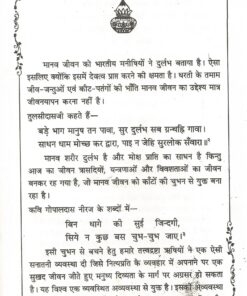 मानव जीवन को भारतीय मनीषियों ने दुर्लभ बताया है। ऐसा
इसलिए क्योंकि इसमें देवत्व प्राप्त करने की क्षमता है। धरती के तमाम
जीव-जन्तुओं एवं कीट-पतंगों की भाँति मानव जीवन का उद्देश्य मात्र
जीवनयापन करना नहीं है।
तुलसीदासजी कहते हैं—
बड़े भाग मानुष तन पावा, सुर दुर्लभ सब ग्रन्थहि गावा।
साधन धाम मोच्छ कर द्वारा, पाइ न जेहि सुरलोक सँवारा॥
मानव शरीर दुर्लभ है और मोक्ष प्राप्ति का साधन है किन्तु
आज का जीवन त्रासदियों, यन्त्रणाओं और विवशताओं का जीवन
बनकर रह गया है, जो मानव जीवन को काँटों की चुभन से युक्त बना
रहा है।
कवि गोपालदास नीरज के शब्दों में—
बिन धागे की सुई जिन्दगी,
सिये न कुछ बस चुभ-चुभ जाए।
इसी चुभन से बचने हेतु हमारे तत्वद्रष्टा ऋषियों ने एक ऐसी
सनातनी व्यवस्था दी जिसे नित्यप्रति के व्यवहार में अपनाने पर एक
सुखद जीवन जीते हुए मनुष्य दिव्यता के मार्ग पर अग्रसर हो सकता
है। यह विश्व एक व्यवस्थित अव्यवस्था से युक्त है। इसकी अव्यवस्था